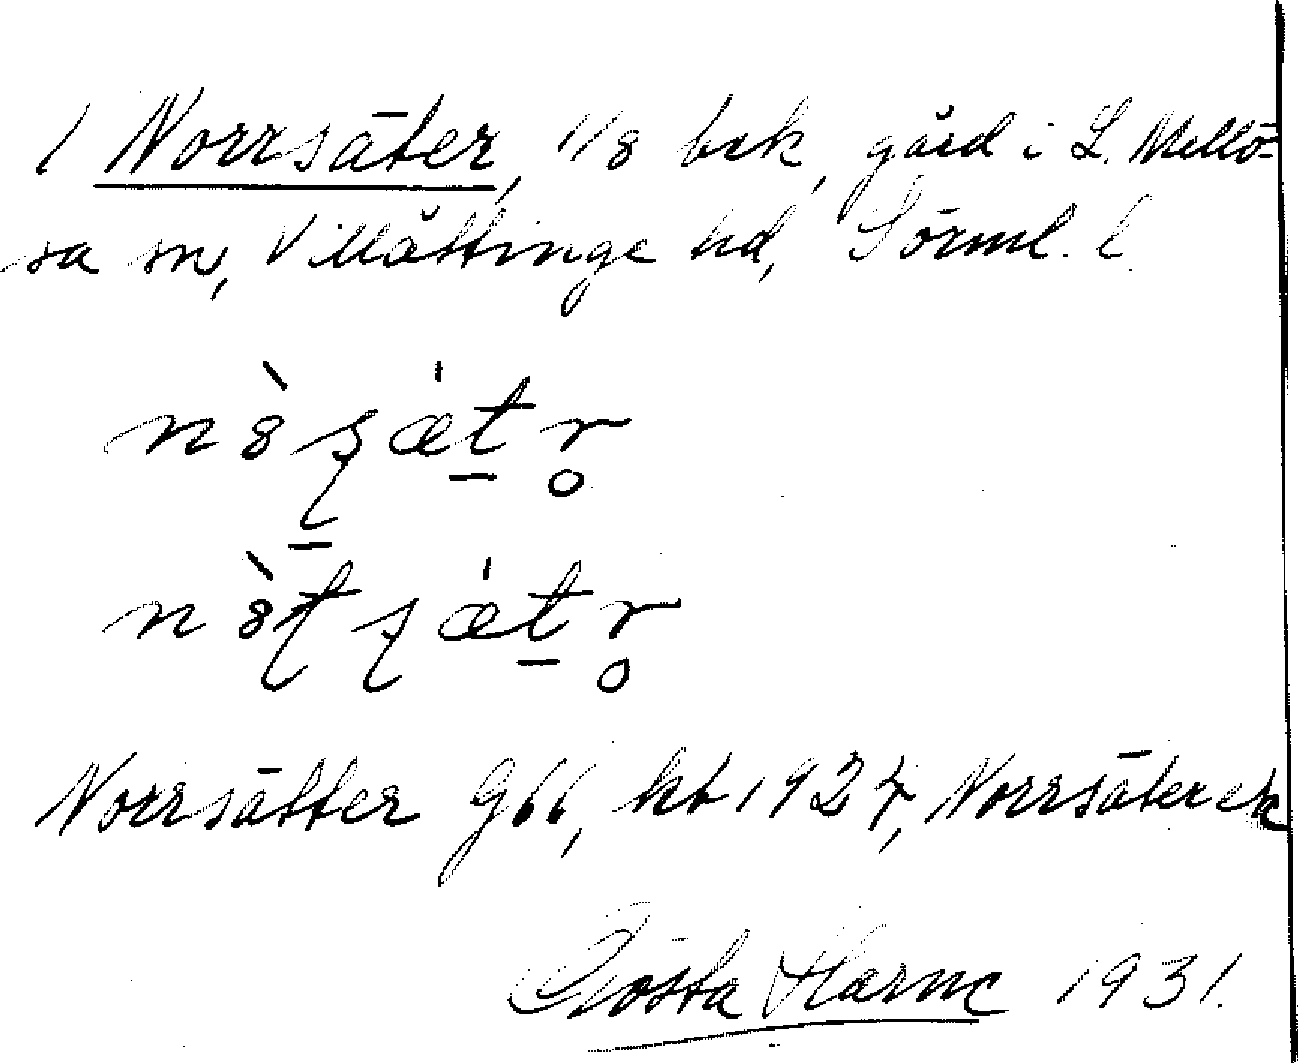 1 Norrsäter, 1/8 bsk, gård i L. Mellö-
sa sn, Villåttinge hd, Sörml. l.
Norrsätter G66, kb 1927, Norrsäter ek
Gösta Harne 1931.